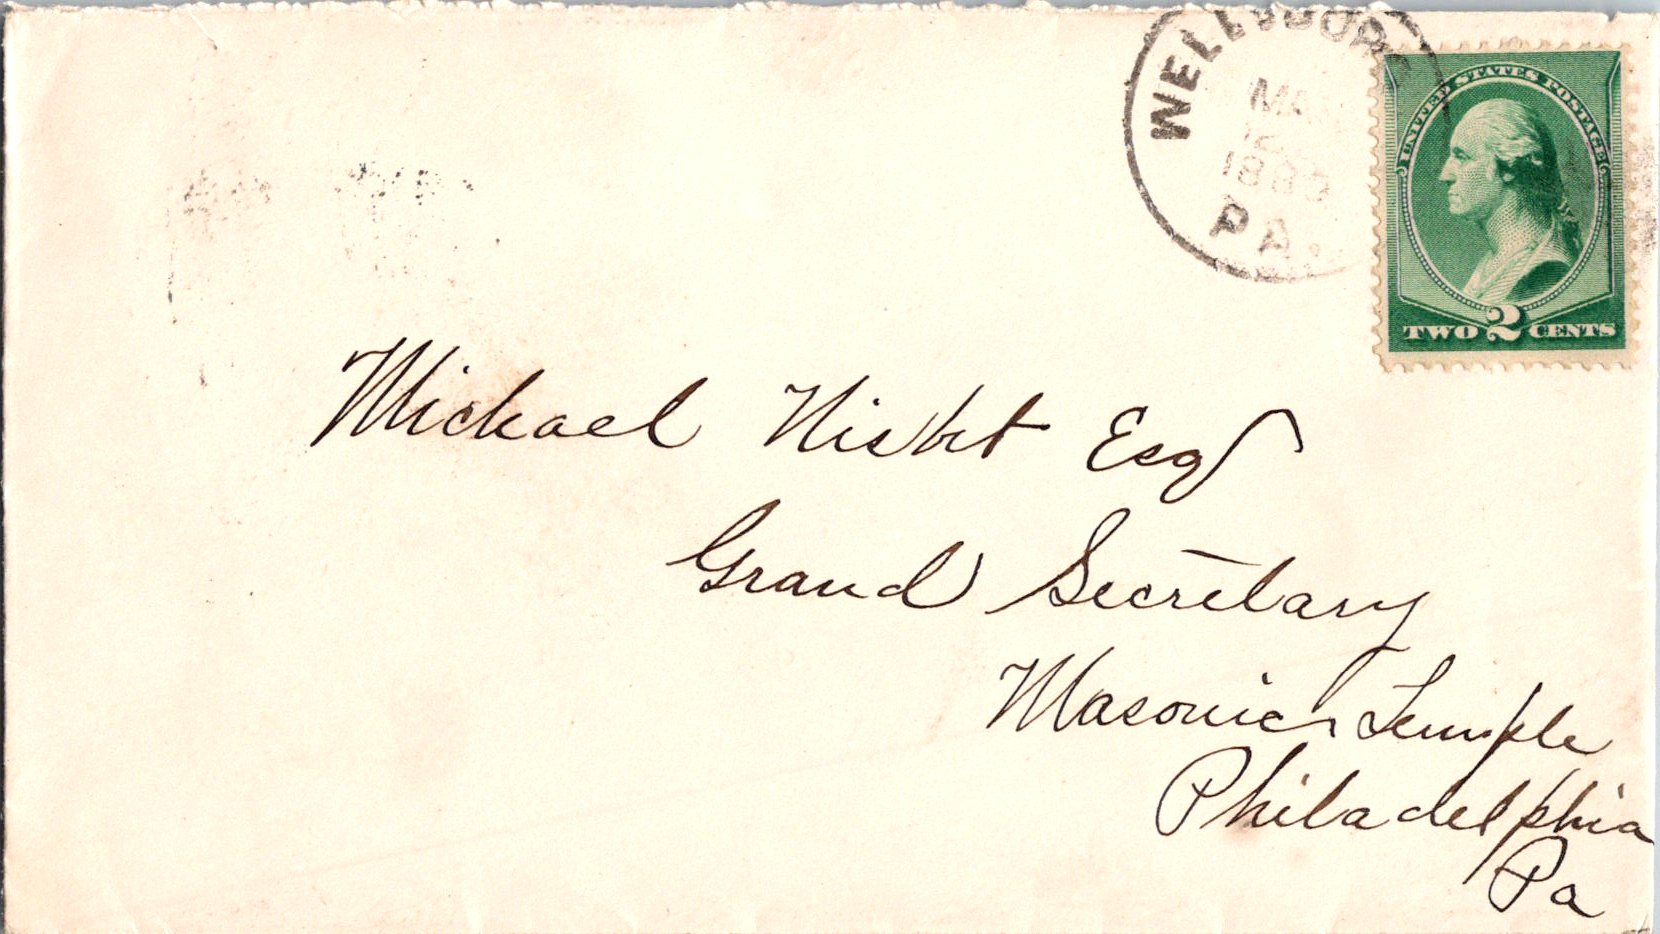 WELLSBORO
MAR
1883
PA.
UNITED STATES POSTAGE
TWO 2 CENTS
Michael Nisbet Esq
Grand Secretary
Masonic Temple
Philadelphia
Pa